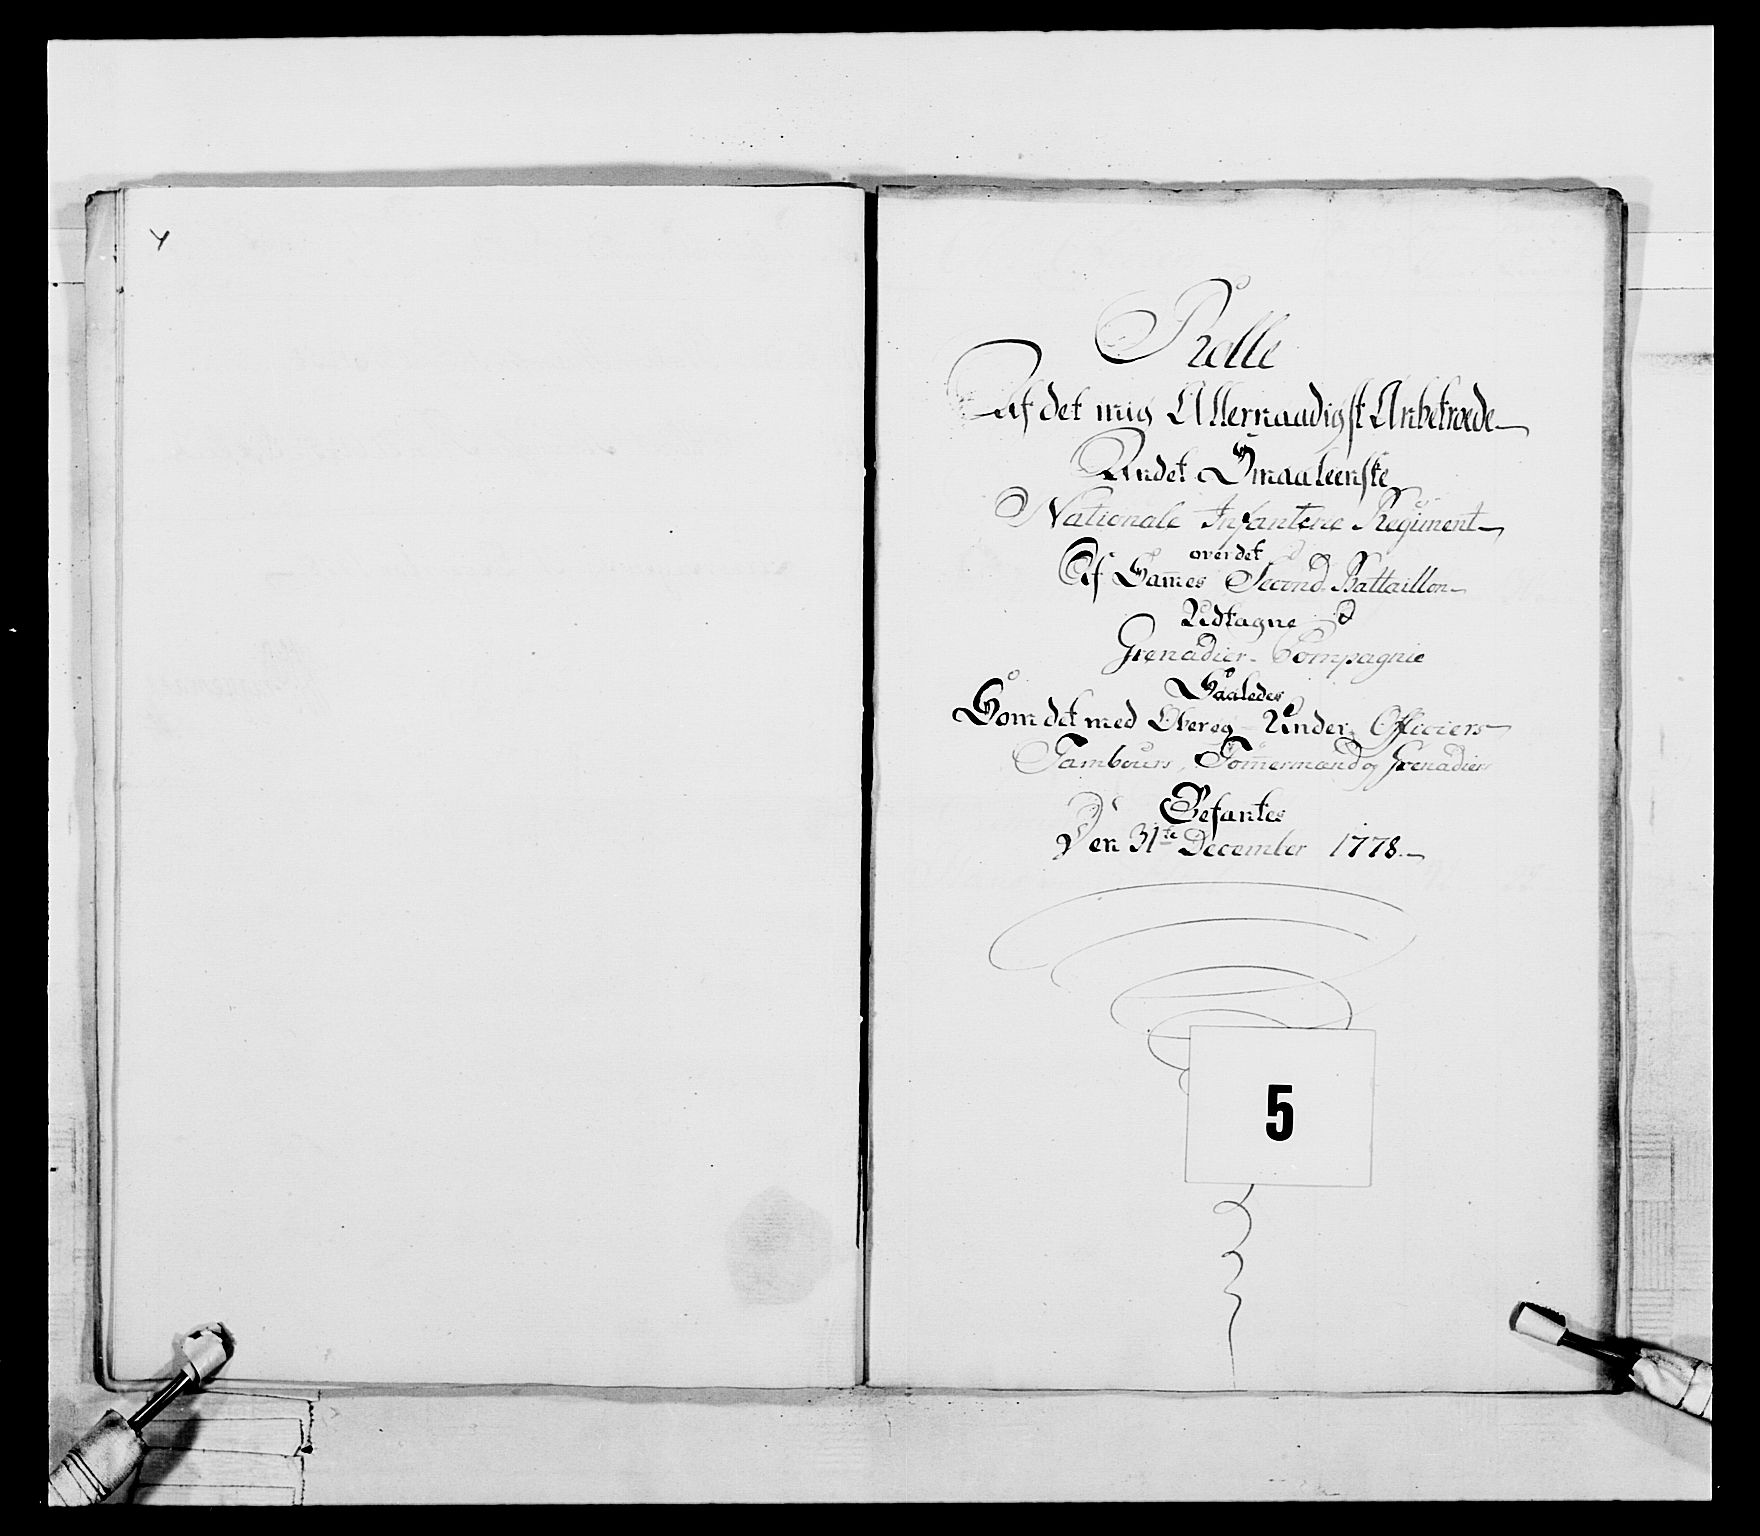 Rolle
Af det mig Allernaadigst Anbetroede
Andet Smaaleenske
Nationale Infanterie Regiment
over det
Af Sam̄es Second Battaillon
Udtagne
Grenadier-Compagnie
Saaledes
Som det med Over og Under Officiers
Tambours, Tom̄ermænd og Grenadiers
Befantes
Den 31te December 1778.
5